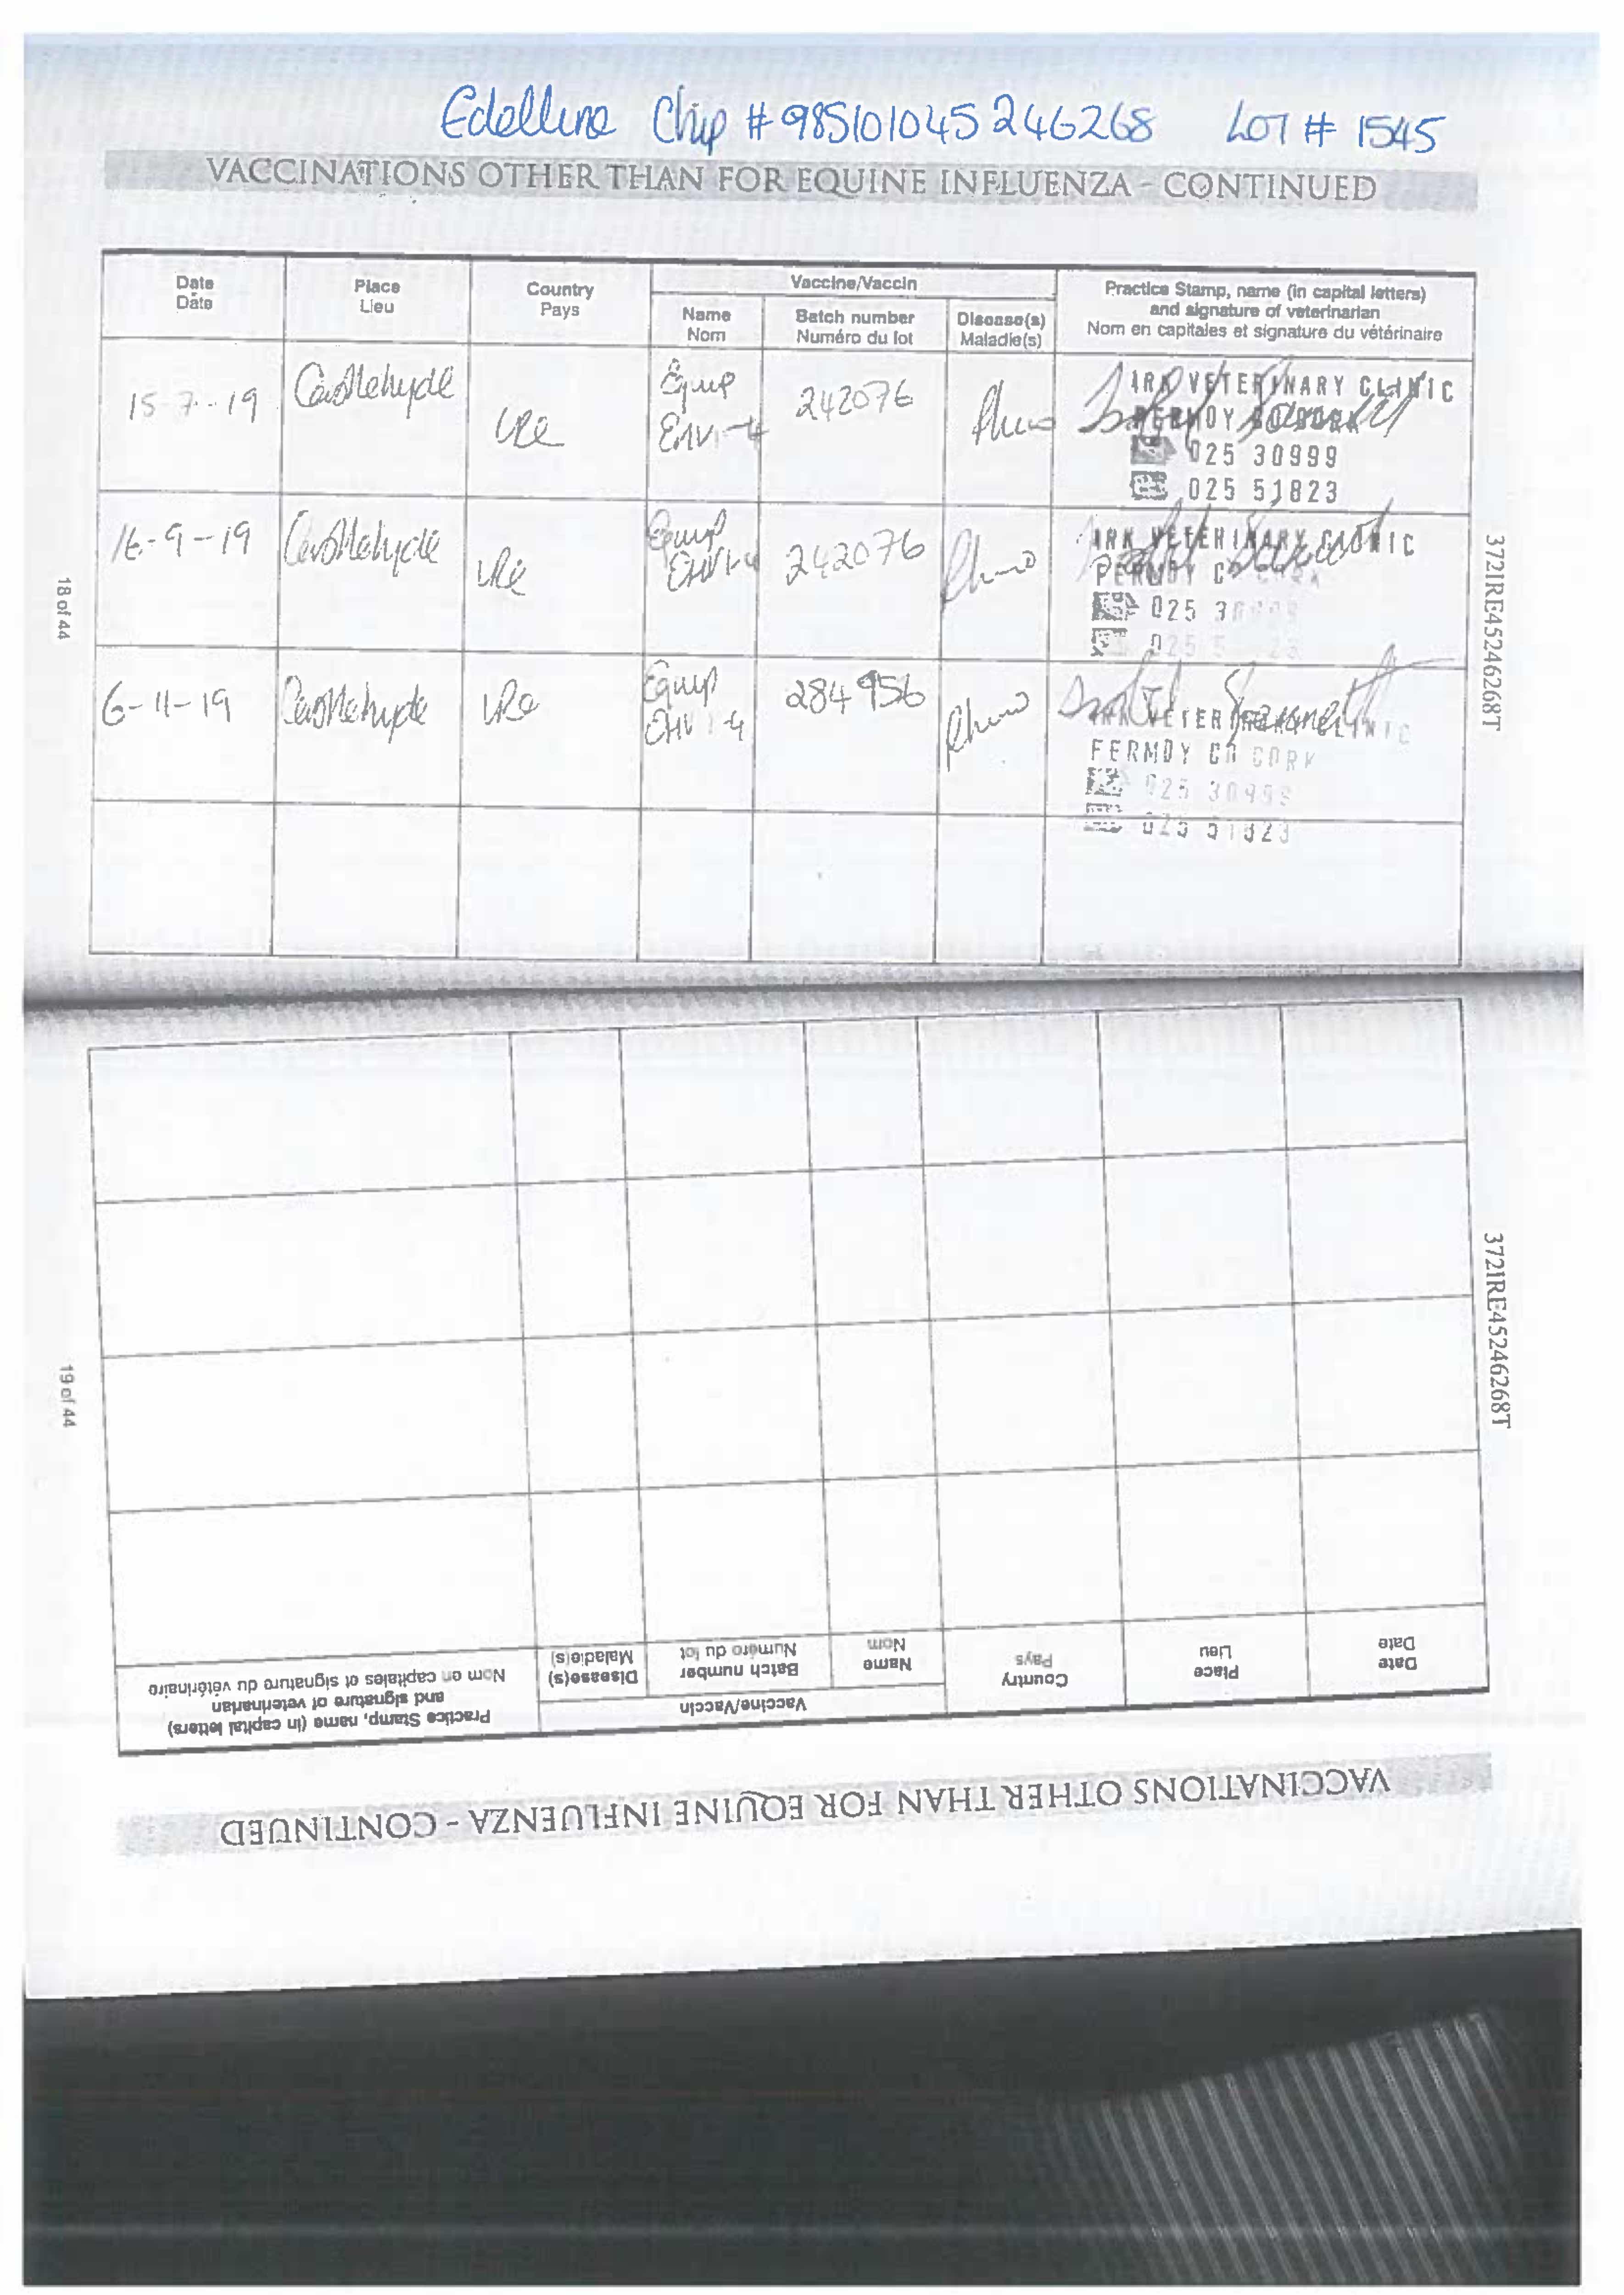 Edellina Chip # 985101045246268 LOT # 1545
VACCINATIONS OTHER THAN FOR EQUINE INFLUENZA - CONTINUED
Date
Date
Place
Lieu
Country
Pays
Vaccine/Vaccin
Name
Nom
Batch number
Numéro du lot
Disease(s)
Maladie(s)
Practice Stamp, name (in capital letters)
and signature of veterinarian
Nom en capitales et signature du vétérinaire
15-7-19 Castlehyde IRe Equip 242076 Rhino
EHV1-4
ARK VETERINARY CLINIC
FERMOY CO CORK
025 30999
025 51823
16-9-19 Castlehyde IRe Equip 242076 Rhino
EHV1-4
ARK VETERINARY CLINIC
FERMOY CO CORK
025
025
6-11-19 Castlehyde IRe Equip 284956 Rhino
EHV 1-4
ARK VETERINARY CLINIC
FERMOY CO CORK
025 30999
025 51823
18 of 44
372IRE45246268T
19 of 44
372IRE45246268T
VACCINATIONS OTHER THAN FOR EQUINE INFLUENZA - CONTINUED
Date
Date
Place
Lieu
Country
Pays
Vaccine/Vaccin
Name
Nom
Batch number
Numéro du lot
Disease(s)
Maladie(s)
Practice Stamp, name (in capital letters)
and signature of veterinarian
Nom en capitales et signature du vétérinaire